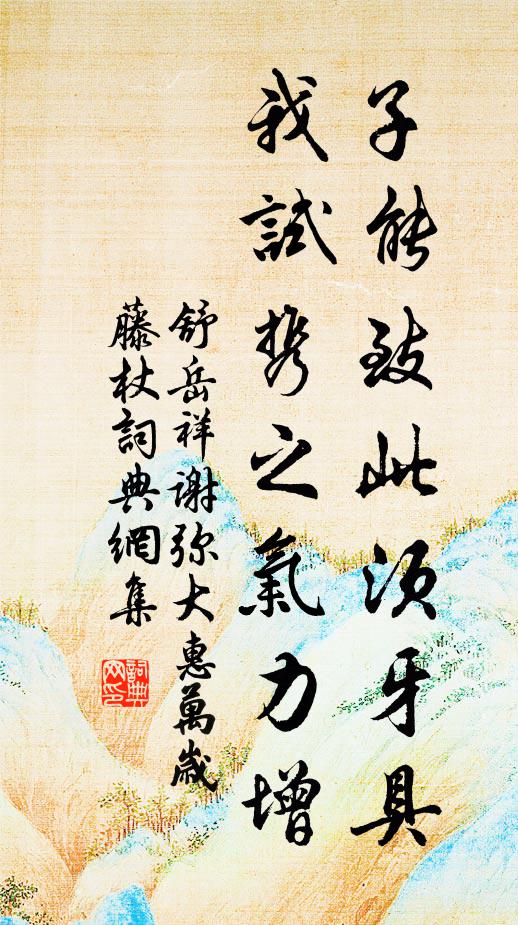 子能致此須牙具
我試携之氣力增
舒岳祥謝弥大惠萬歲
藤杖詞典網集
詞典
网印